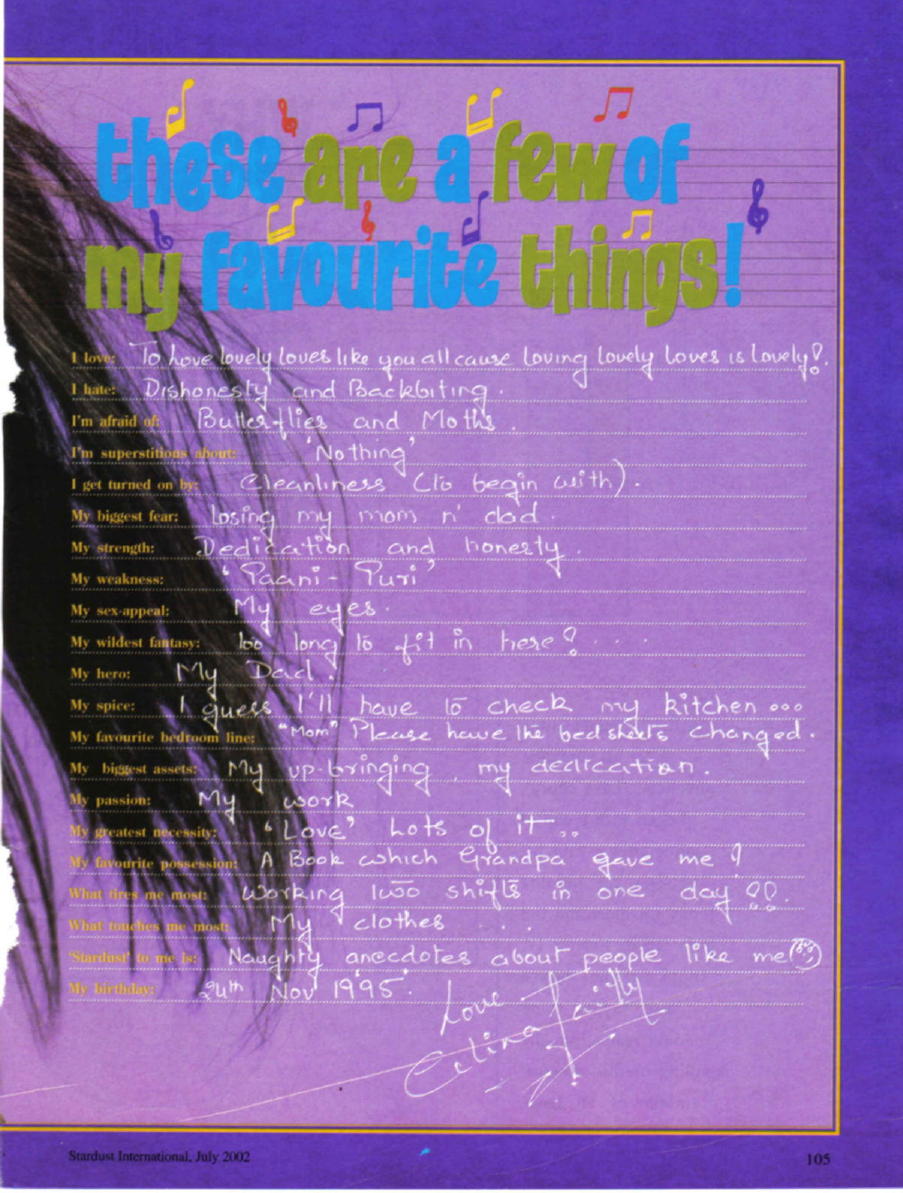 these are a few of
my favourite things!
I love: To have lovely loves like you all cause loving lovely loves is lovely!
I hate: Dishonesty and Backbiting.
I'm afraid of: Butterflies and Moths.
I'm superstitious about: 'Nothing'
I get turned on by: Cleanliness (to begin with).
My biggest fear: Losing my mom n' dad.
My strength: Dedication and honesty.
My weakness: 'Paani-Puri'
My sex-appeal: My eyes.
My wildest fantasy: too long to fit in here!
My hero: My Dad.
My spice: I guess I'll have to check my kitchen...
My favourite bedroom line: "Mom" Please have the bedsheets changed.
My biggest assets: My up-bringing, my dedication.
My passion: My work
My greatest necessity: "Love" Lots of it..
My favourite possession: A Book which Grandpa gave me!
What tires me most: Working two shifts in one day!!
What touches me most: My clothes ...
'Stardust' to me is: Naughty anecdotes about people like me
My birthday: 24th Nov 1995.
Love
Celina Jaitly
Stardust International, July 2002
105